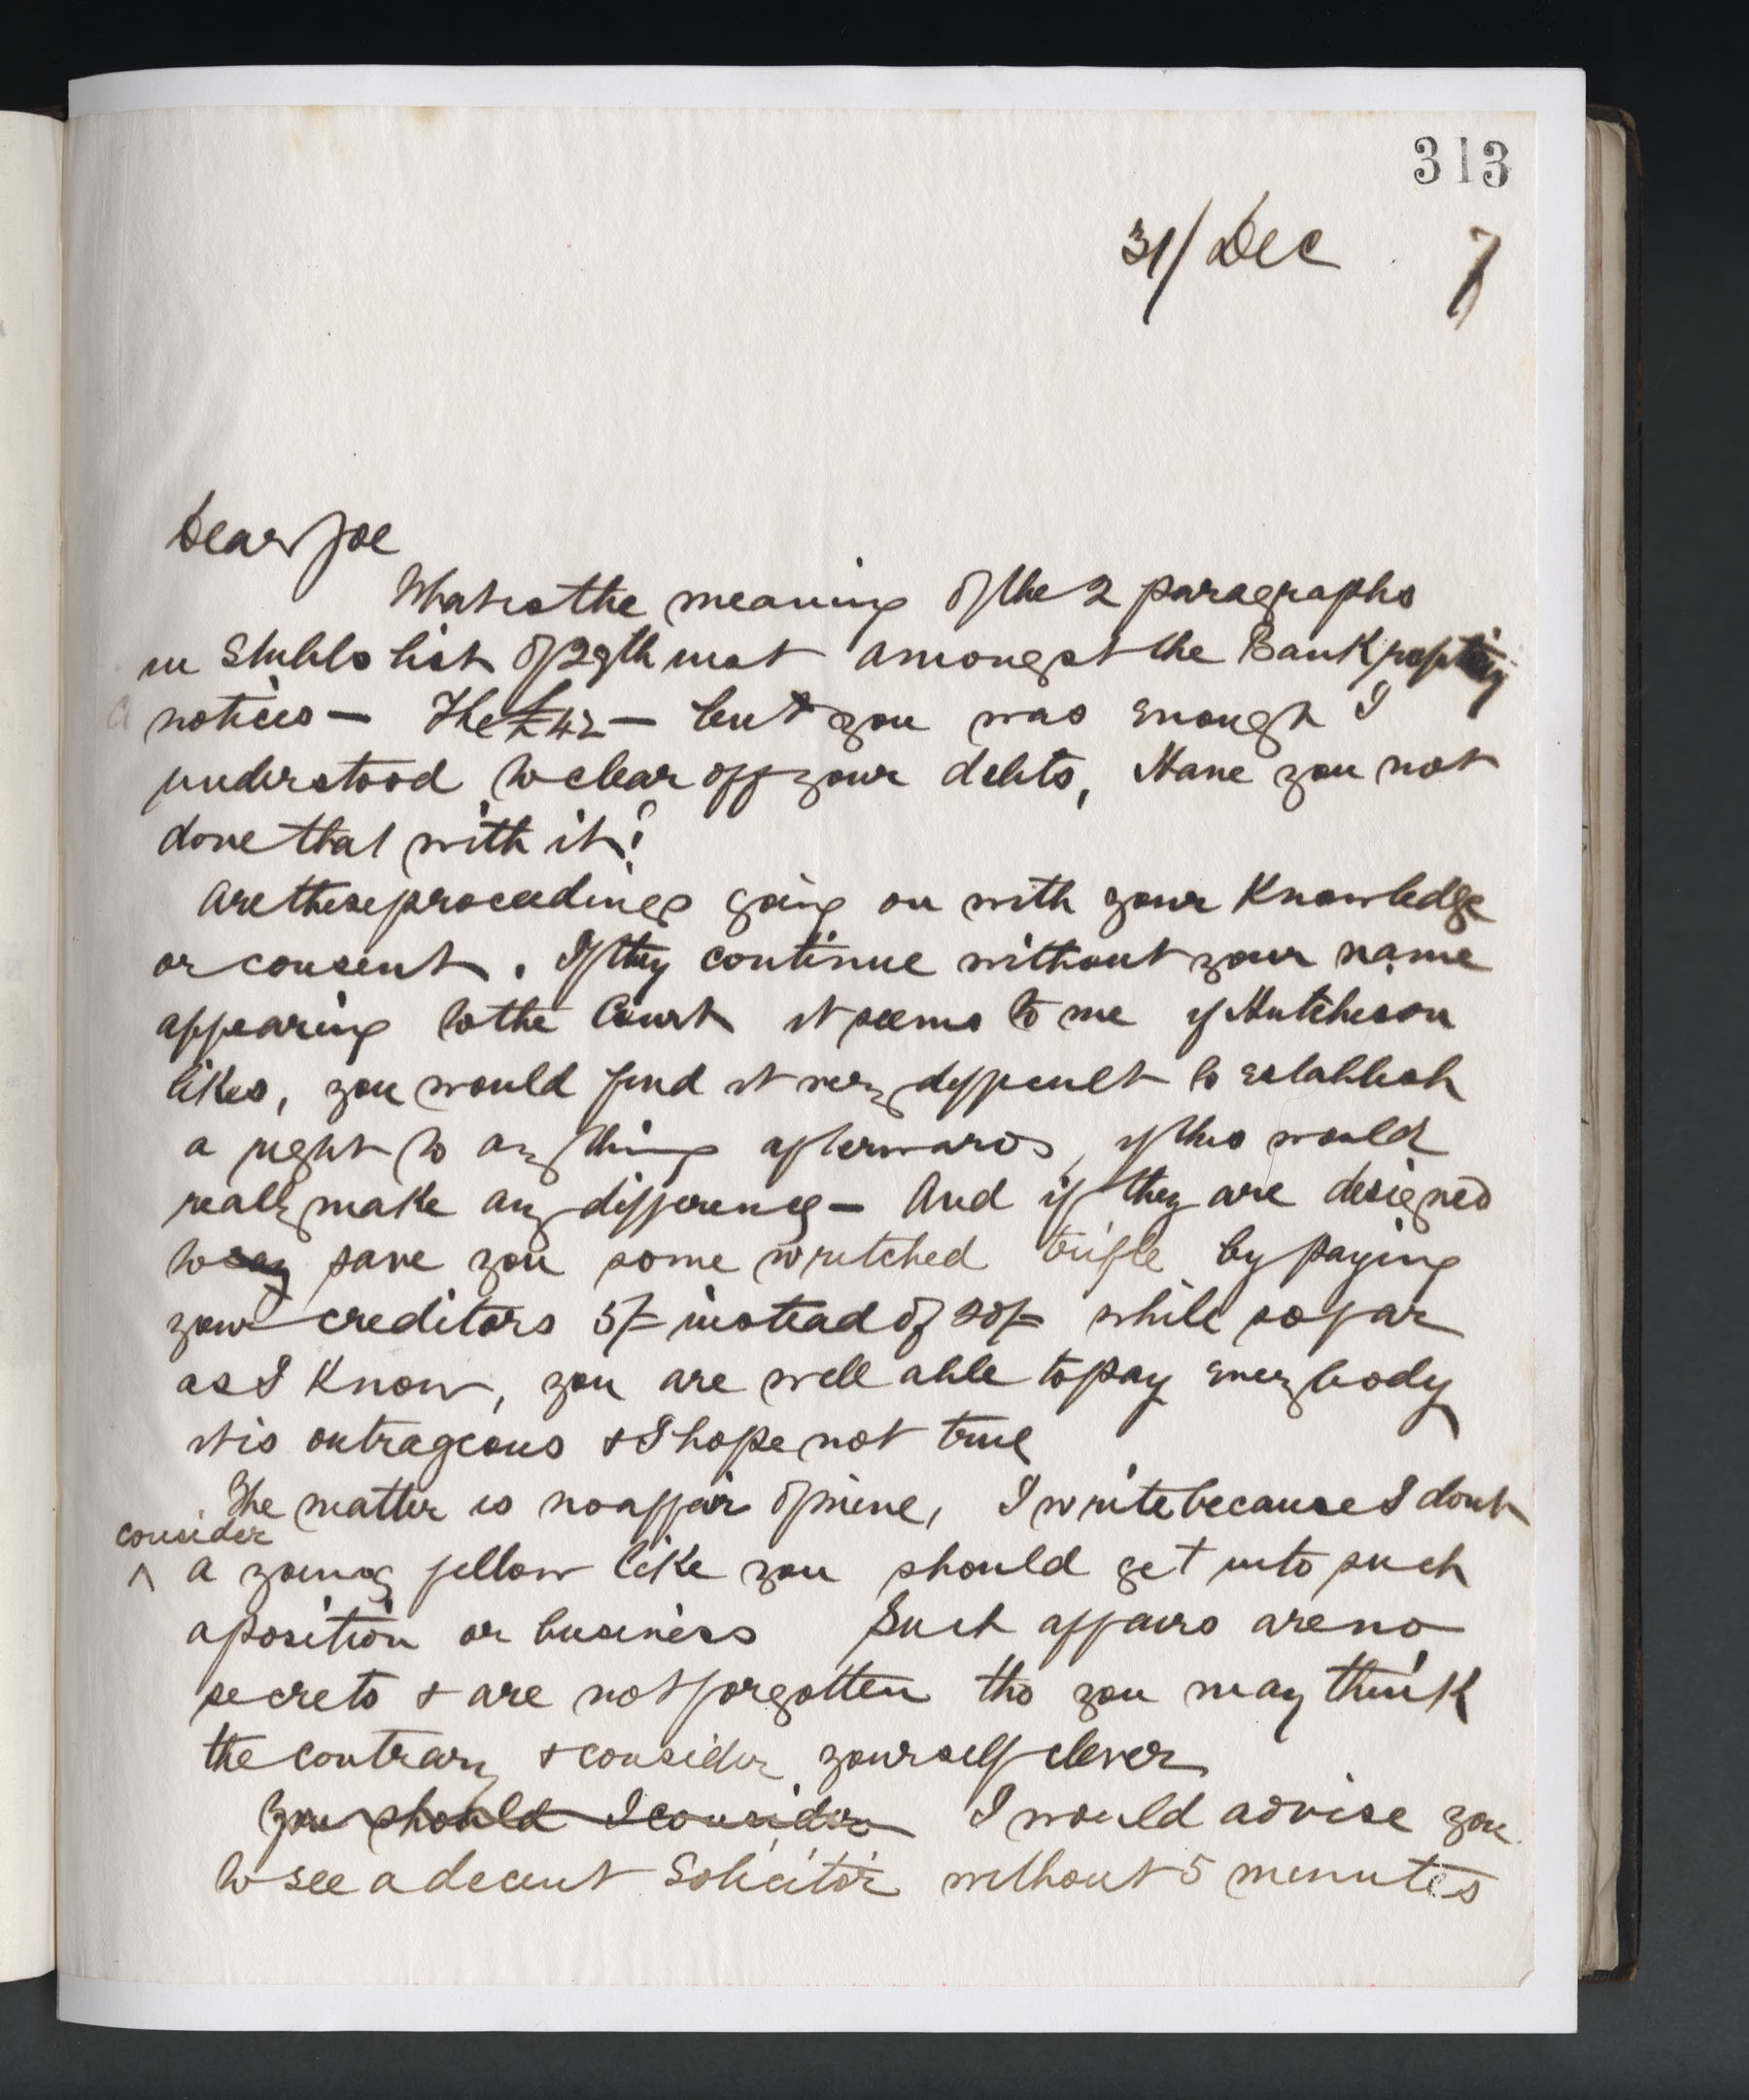 313
31/ Dec 7
Dear Joe
What is the meaning of the 2 paragraphs
in Stubbs list of 29th inst amongst the Bankruptcy
notices — The £42 — lent you was enough I
understood to clear off your debts, Have you not
done that with it?
Are these proceedings going on with your Knowledge
or consent. If they continue without your name
appearing to the Court it seems to me if Hutcheson
likes, you would find it very difficult to establish
a right to anything afterwards, if this would
really make any difference — And if they are designed
to say save you some wretched trifle by paying
your creditors 5/- instead of 20/- while so far
as I Know, you are well able to pay every body
it is outrageous & I hope not true
The matter is no affair of mine, I write because I dont
consider
^ a young fellow like you should get into such
a position or business Such affairs are no
secrets & are not forgotten tho you may think
the contrary & consider yourself clever
You should I consider I would advise you
to see a decent Solicitor without 5 minutes